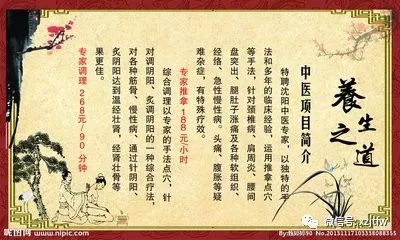 養生
之道
中医项目简介
特聘沈阳中医专家，以独特的手
法和多年的临床经验，运用推拿点穴
等手法，针对颈椎病、肩周炎、腰间
盘突出、腿肚子涨痛及各种软组织、
经络、急性慢性病。头痛、腹胀等疑
难杂症，有特殊疗效。
专家推拿188元/小时
综合调理以专家的手法点穴，针
对调阴阳、炙调阴阳的一种综合疗法，
对各种筋骨、慢性病、通过针阴阳、
炙阴阳达到温经壮肾，经肾壮骨等
果更佳。
专家调理 268元/90 分钟
昵图网
www.nipic.com
微信号: xzjtfw